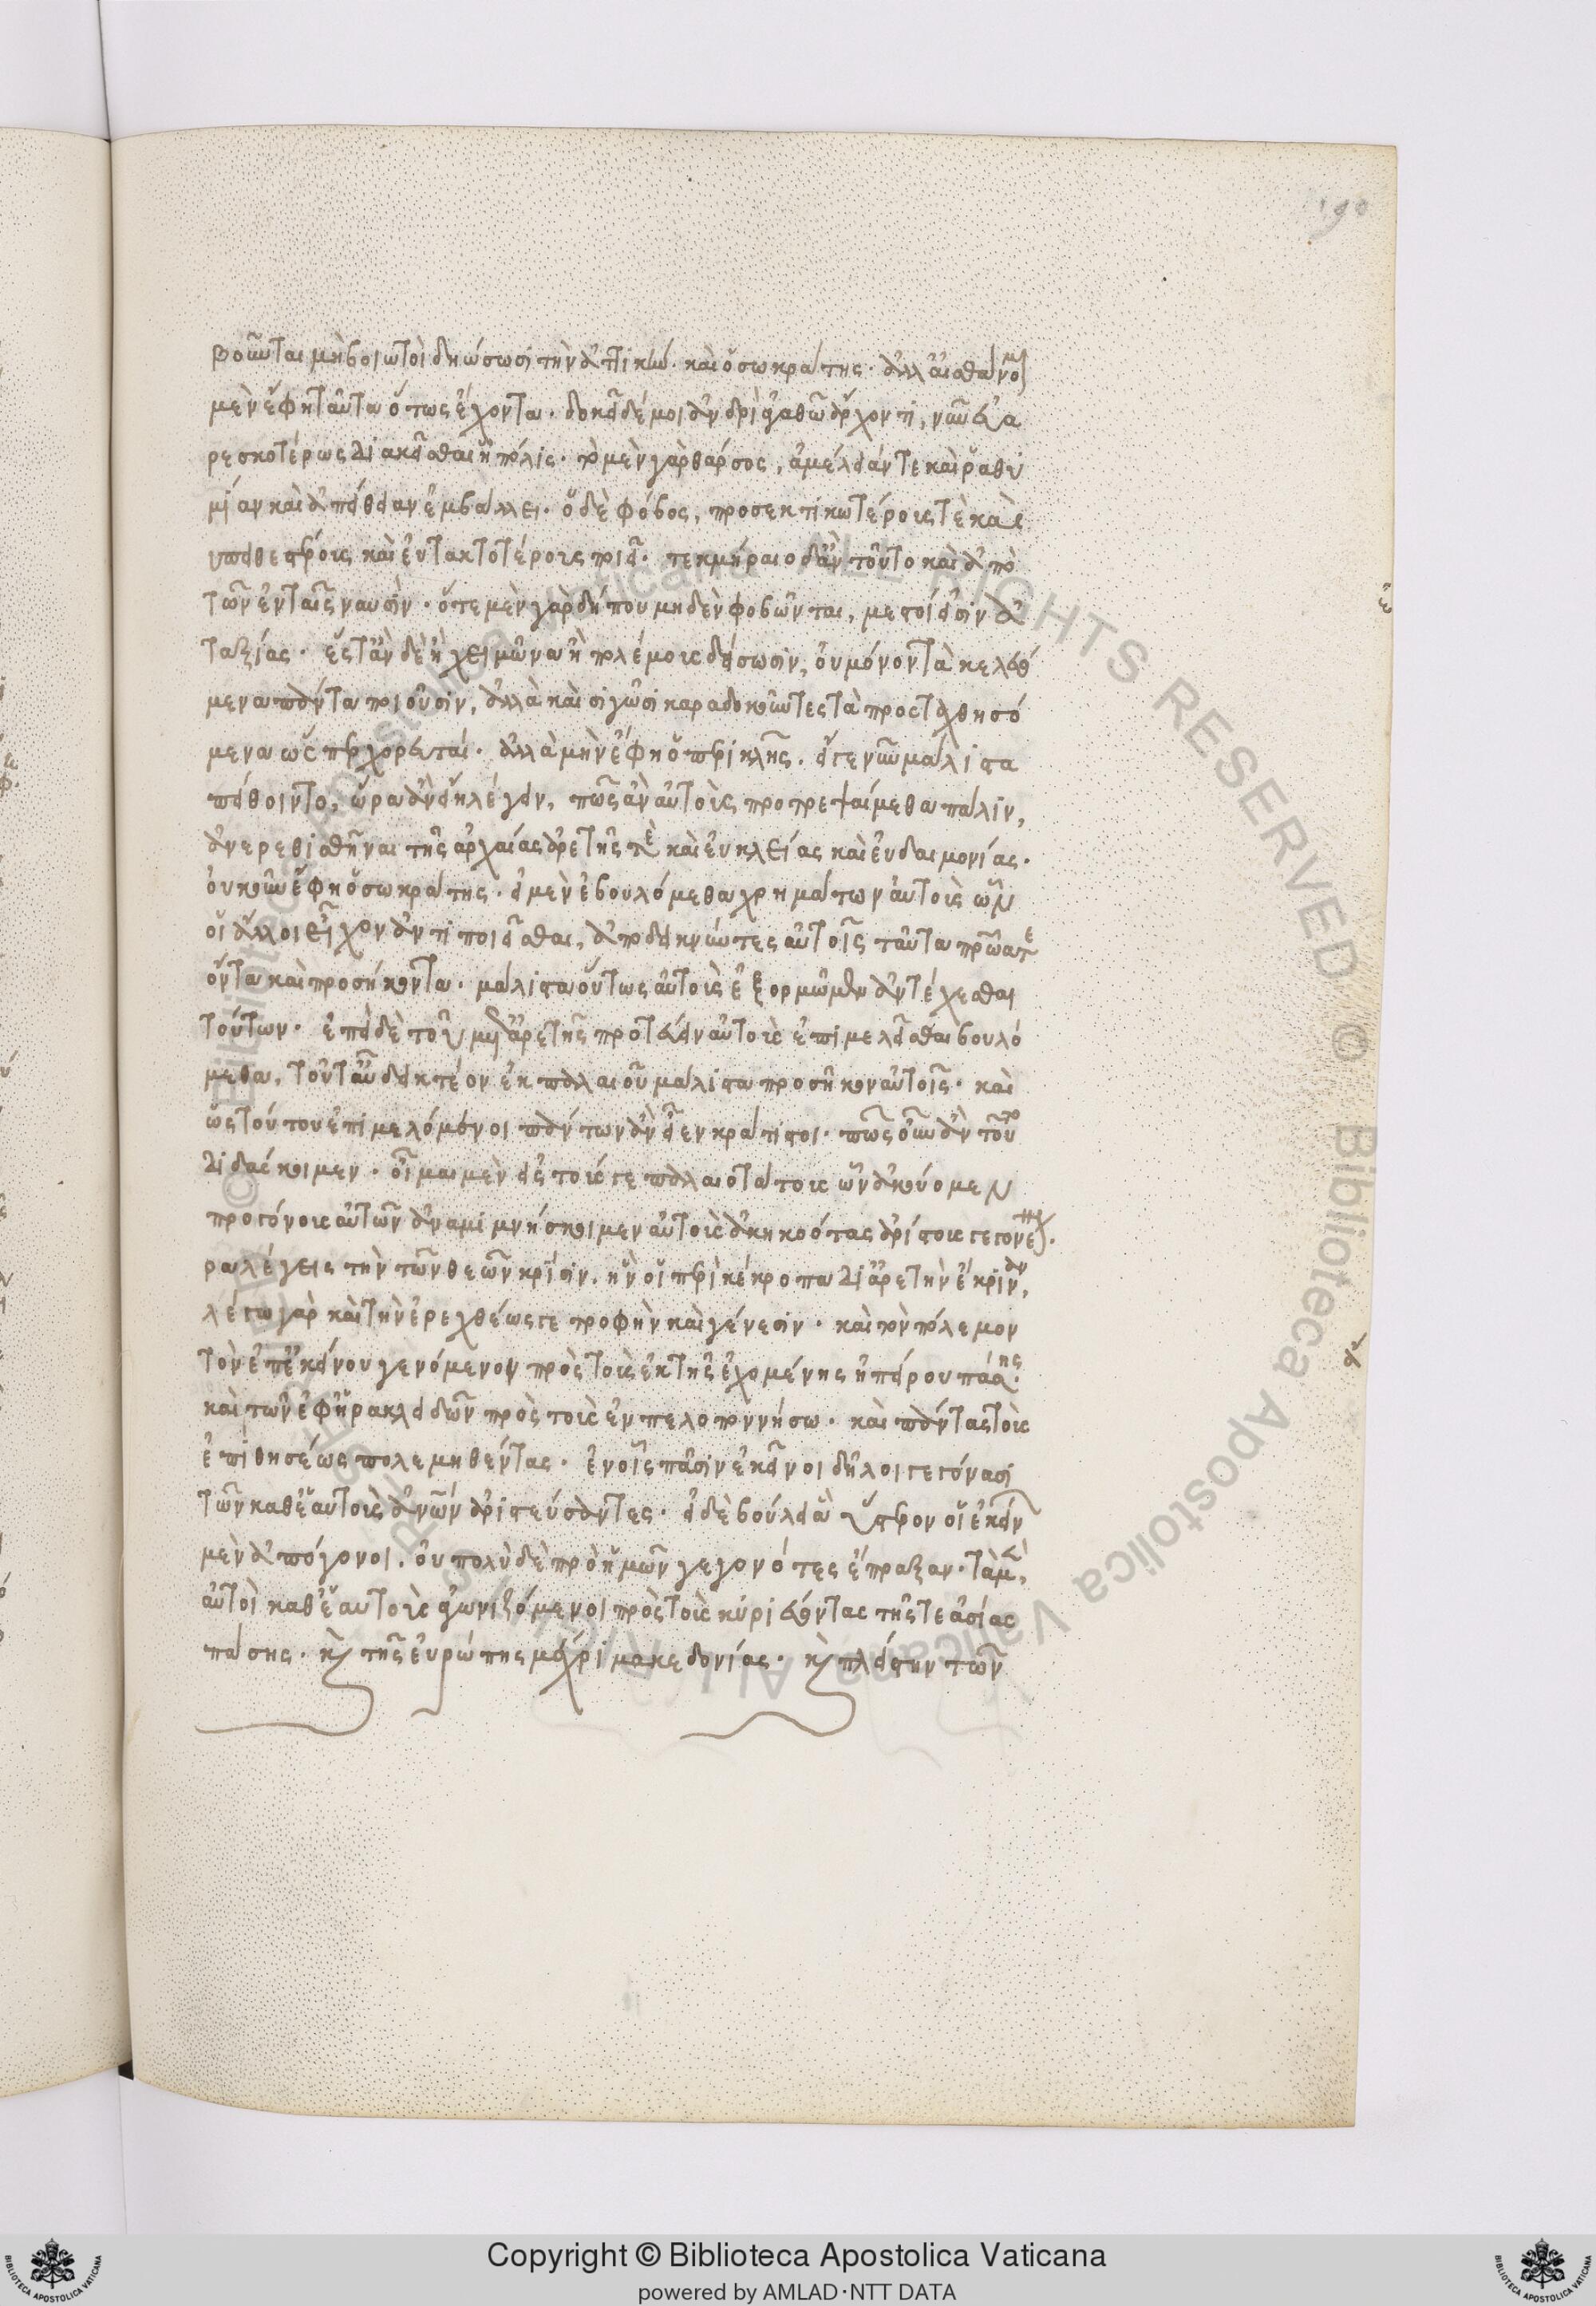 190
βοῦνται μὴ βοιωτοὶ δηώσωσι τὴν ἀττικήν. καὶ ὁ σωκράτης. ἀλλ' αἰσθάνομαι
μὲν ἔφη ταῦτα οὕτως ἔχοντα. δοκεῖ δέ μοι ἀνδρὶ ἀγαθῷ ἄρχοντι, νῦν εὐα
ρεσκοτέρως διακεῖσθαι ἡ πόλις. τὸ μὲν γὰρ θάρσος, ἀμέλειάν τε καὶ ῥαθυ
μίαν καὶ ἀπείθειαν ἐμβάλλει. ὁ δὲ φόβος, προσεκτικωτέρους τὲ καὶ ε
υπειθεστέρους καὶ εὐτακτοτέρους ποιεῖ. τεκμήραιο δ' ἂν τοῦτο καὶ ἀπὸ
τῶν ἐν ταῖς ναυσίν. ὅτε μὲν γὰρ δήπου μηδὲν φοβῶνται, μεστοί εἰσιν ἀ
ταξίας. ἔς τ' ἂν δὲ ἢ χειμῶνα ἢ πολέμους δείσωσιν, οὐ μόνον τὰ κελευό
μενα πάντα ποιοῦσιν, ἀλλὰ καὶ σιγῶσι καραδοκοῦντες τὰ προσταχθησό
μενα ὥσπερ χορευταί. ἀλλὰ μὴν ἔφη ὁ περικλῆς. εἴγε νῦν μάλιστα
πείθοιντο, ὥρα ἂν εἴη λέγειν, πῶς ἂν αὐτοὺς προτρεψαίμεθα πάλιν,
ἀνερεθισθῆναι τῆς ἀρχαίας ἀρετῆς τὲ καὶ εὐκλείας καὶ εὐδαιμονίας.
οὐκοῦν ἔφη ὁ σωκράτης. εἰ μὲν ἐβουλόμεθα χρημάτων αὐτοὺς ὧν
οἱ ἄλλοι εἶχον ἀντιποιεῖσθαι, ἀποδεικνύντες αὐτοῖς ταῦτα πρῷά τε
ὄντα καὶ προσήκοντα. μάλιστα οὕτως αὐτοὺς ἐξορμῷμεν ἀντέχεσθαι
τούτων. ἐπεὶ δὲ τοῦ μετ' ἀρετῆς πρωτεύειν αὐτοὺς ἐπιμελεῖσθαι βουλό
μεθα, τοῦτ' αὖ δεικτέον ἐκ παλαιοῦ μάλιστα προσῆκον αὐτοῖς. καὶ
ὡς τούτου ἐπιμελόμενοι πάντων ἂν εἶεν κράτιστοι. πῶς οὖν ἂν τοῦτο
διδάσκοιμεν. οἶμαι μὲν εἰ τούς γε παλαιοτάτους ὧν ἀκούομεν
προγόνους αὐτῶν ἀναμιμνήσκοιμεν αὐτοὺς ἀκηκοότας ἀρίστους γεγονέναι.
ρα λέγεις τὴν τῶν θεῶν κρίσιν, ἣν οἱ περὶ κέκροπα δι' ἀρετὴν ἔκριναν,
λέγω γὰρ καὶ τὴν ἐρεχθέως γε τροφὴν καὶ γένεσιν. καὶ τὸν πόλεμον
τὸν ἐπ' ἐκείνου γενόμενον πρὸς τοὺς ἐκ τῆς ἐχομένης ἠπείρου πάσης.
καὶ τῶν ἐφ' ἡρακλειδῶν πρὸς τοὺς ἐν πελοποννήσω. καὶ πάντας τοὺς
ἐπὶ θησέως πολεμηθέντας. ἐν οἷς πᾶσιν ἐκεῖνοι δῆλοι γεγόνασι
τῶν καθ' ἑαυτοὺς ἀνων ἀριστεύσαντες. εἰ δὲ βούλει ἃ ὕστερον οἱ ἐκείν
μὲν ἀπόγονοι, οὐ πολὺ δὲ πρὸ ἡμῶν γεγονότες ἔπραξαν. τὰ μὲν,
αὐτοὶ καθ' ἑαυτοὺς ἀγωνιζόμενοι πρὸς τοὺς κυριεύοντας τῆς τε ἀσίας
πάσης. κ τῆς εὐρώπης μέχρι μακεδονίας. κ πλείστην τῶν